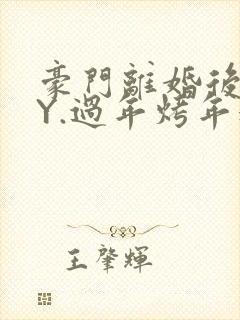 豪門離婚後
Y.過年烤年
王肇輝